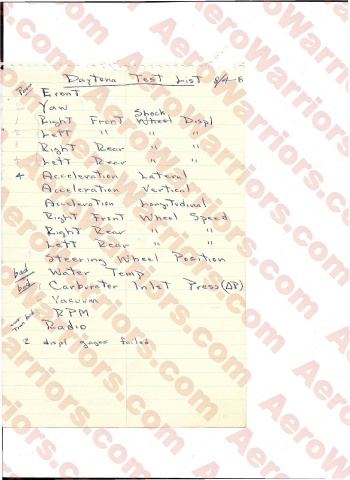 Daytona Test List 8/4-8
Event
Yaw
Right Front Shock Wheel Displ
Left " " "
Right Rear " "
Left Rear " "
4 Acceleration Lateral
Acceleration Vertical
Acceleration Longitudinal
Right Front Wheel Speed
Right Rear " "
Left Rear " "
Steering Wheel Position
bad Water Temp
bad Carburetor Inlet Press (ΔP)
Vacuum
RPM
Radio
2 displ gages failed
AeroWarriors.com